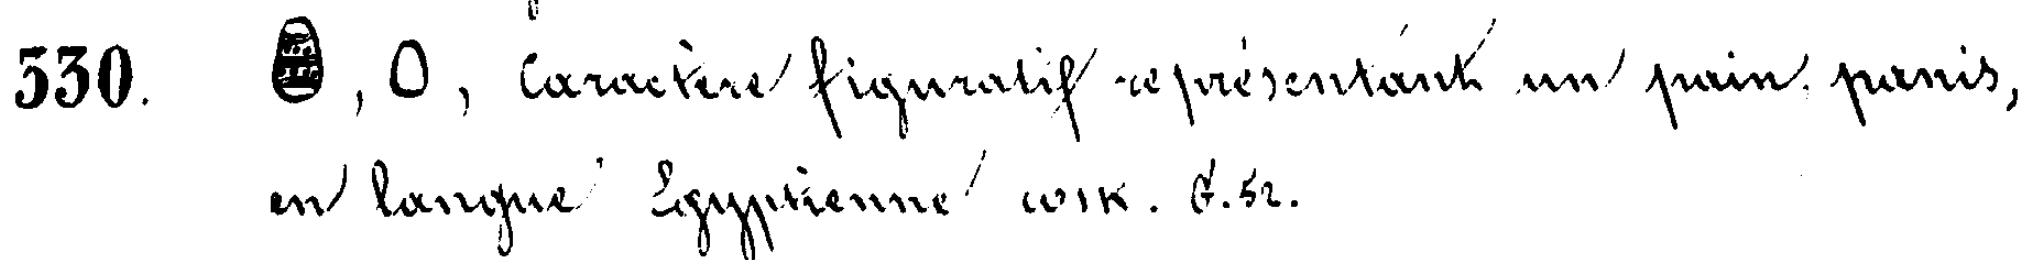 530. , , Caractère figuratif représentant un pain. panis,
en langue Égyptienne ωικ. G. 52.